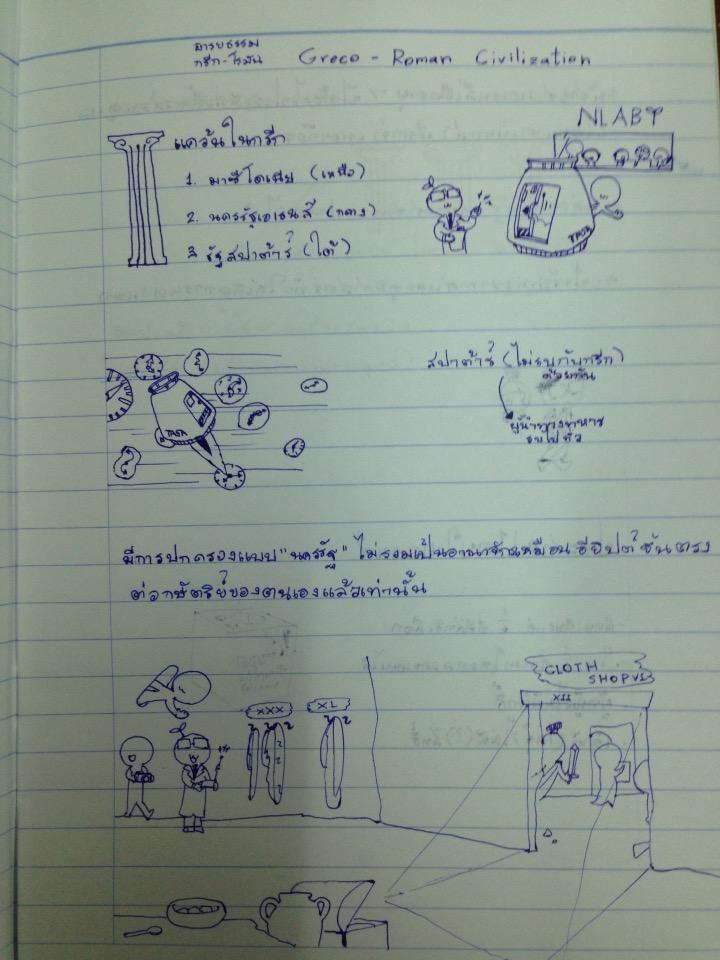 อารยธรรม
กรีก-โรมัน Greco - Roman Civilization
แคว้นในกรีก
NLAB
1. มาซิโดเนีย (เหนือ)
2. นครรัฐเอเธนส์ (กลาง)
3. รัฐสปาต้าร์ (ใต้)
TASA
สปาต้าร์ (ไม่รบกับกรีก)
ด้วยกัน
ผู้นำทางทหาร
รบไปทั่ว
TASA
มีการปกครองแบบ "นครรัฐ" ไม่รวมเป็นอาณาจักรเหมือน อียิปต์ ขึ้นตรง
ต่อกษัตริย์ของตนเองแล้วเท่านั้น
CLOTH
SHOP
XXX XL XII